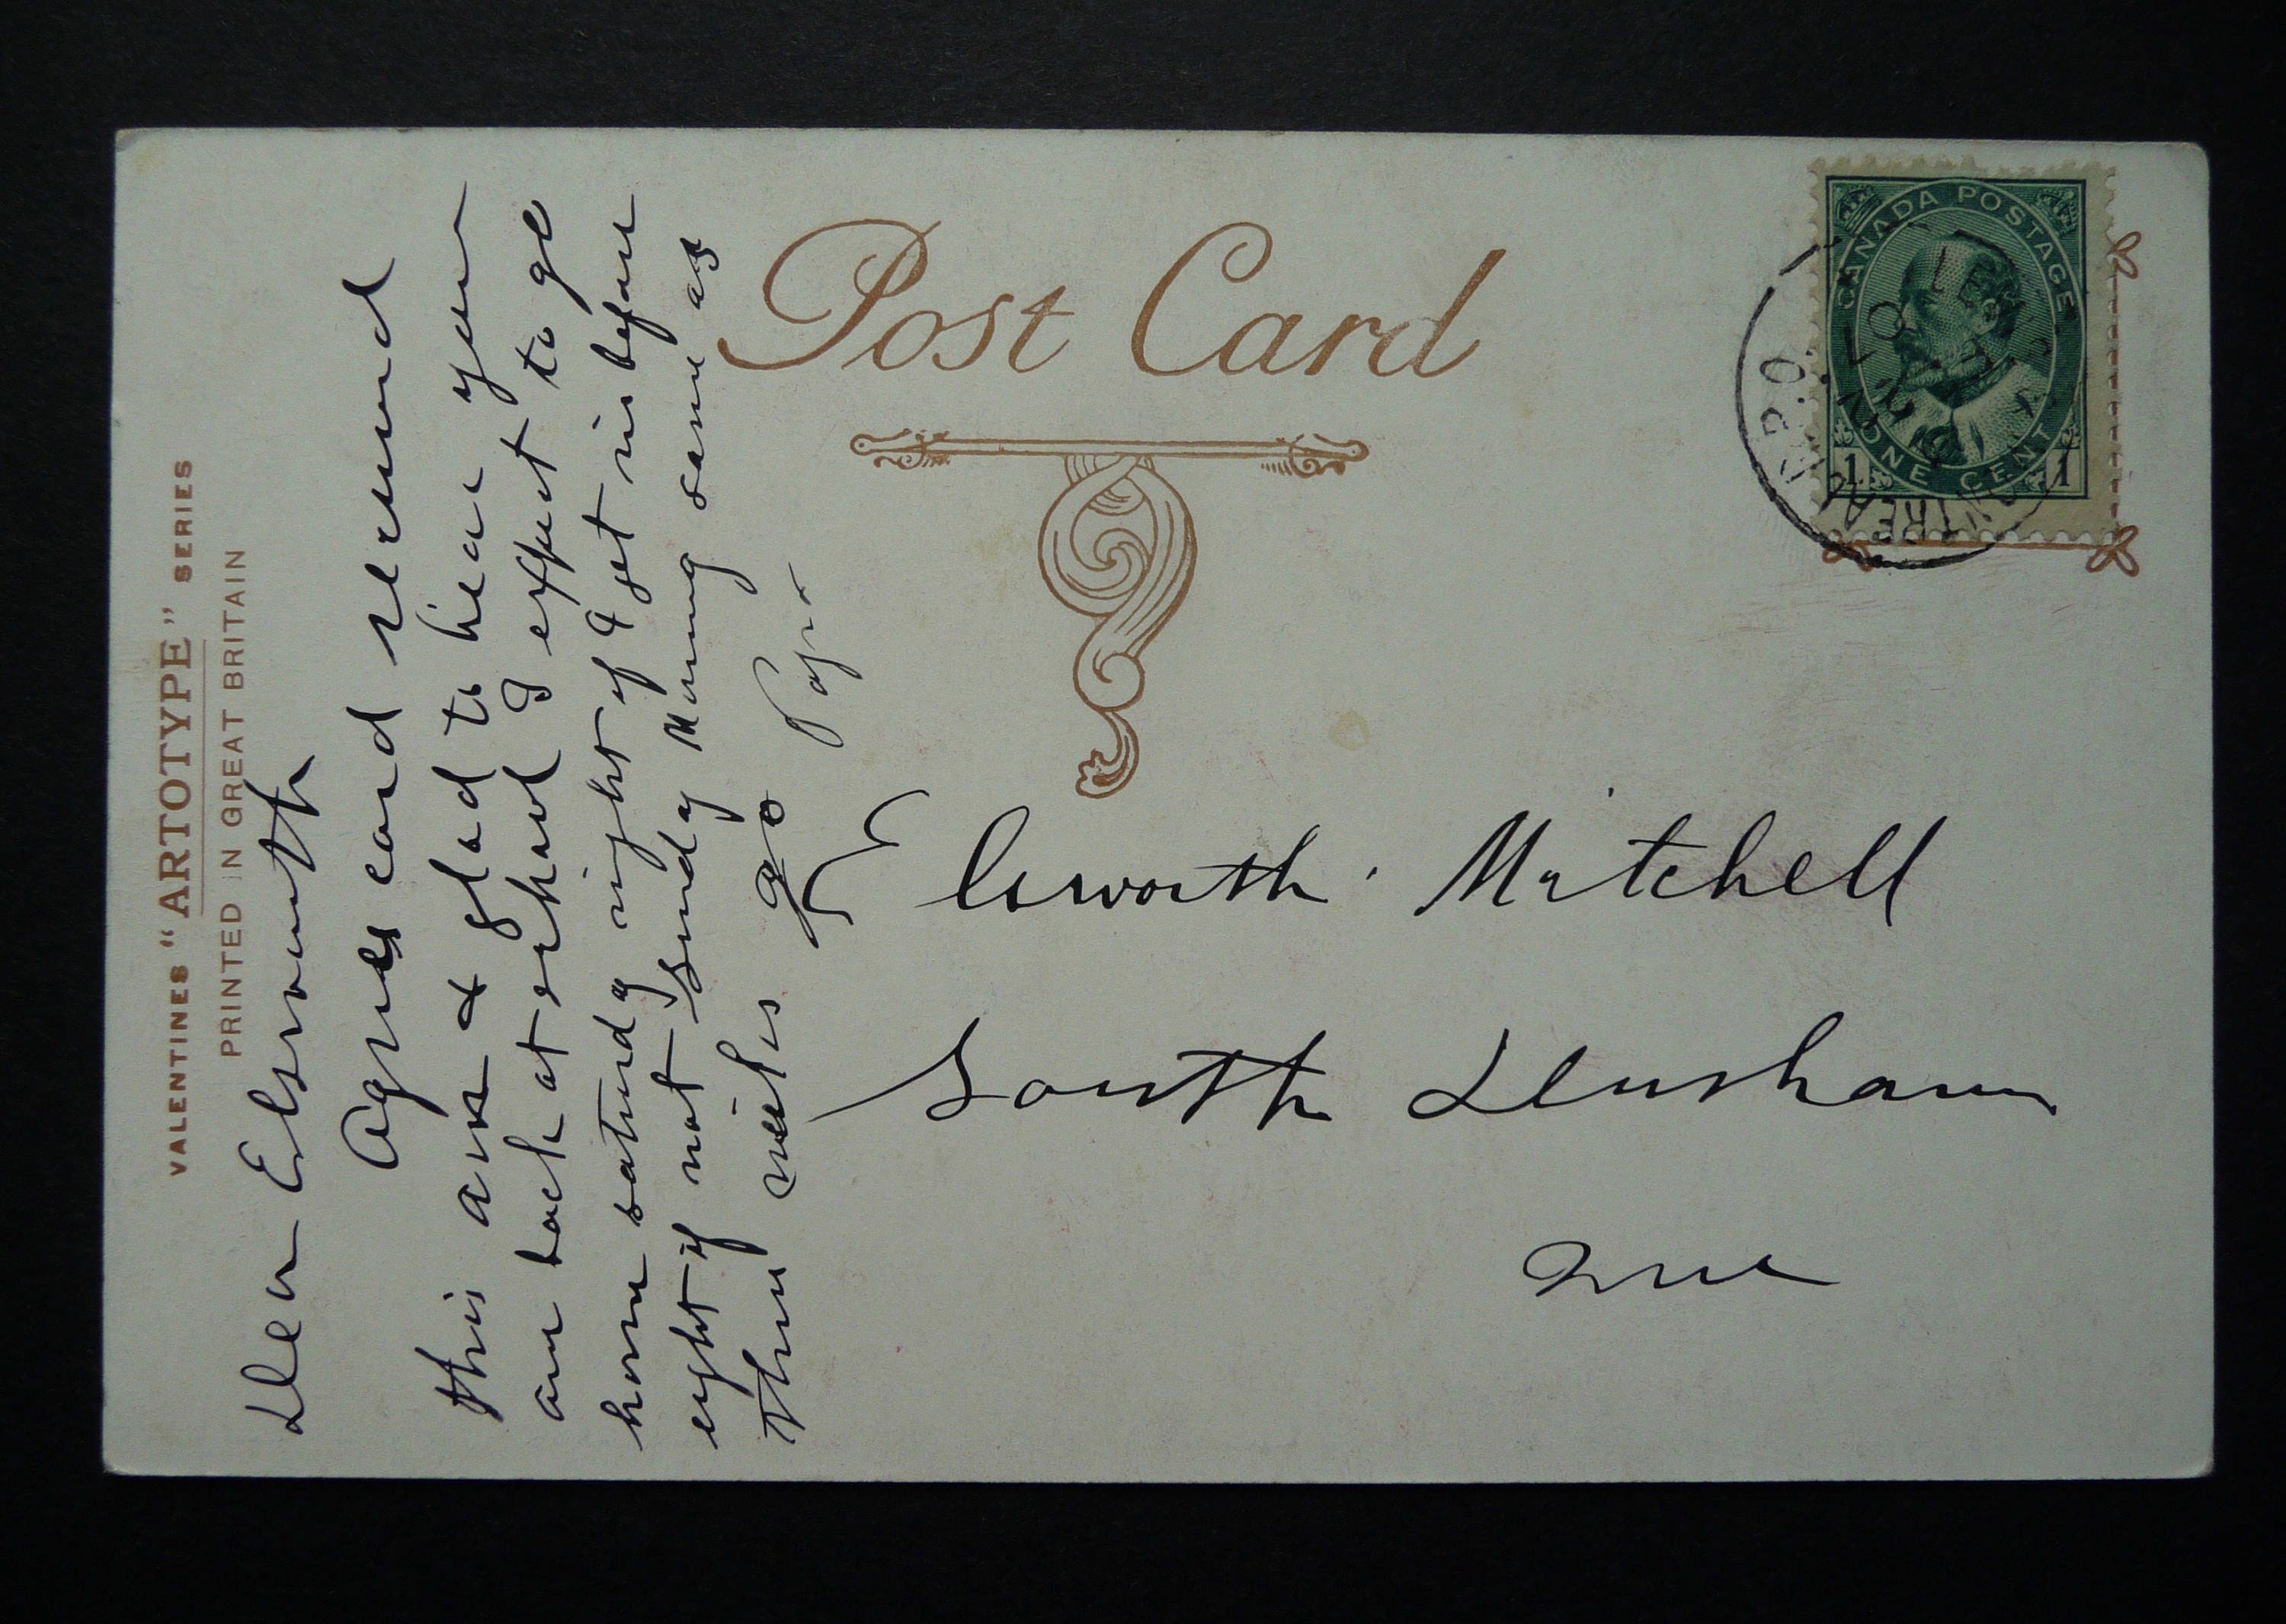 VALENTINES "ARTOTYPE" SERIES
PRINTED IN GREAT BRITAIN
Dear Elsworth
Agnes card received
this am & glad to hear you
are back at school I expect to go
home saturday night if I get in before
eight if not Sunday Morning same as
then go Papa
Post Card
CANADA POSTAGE
ONE CENT
1 1
R.P.O.
MONTREAL
LEVIS
07
Elsworth Mitchell
South Durham
Que